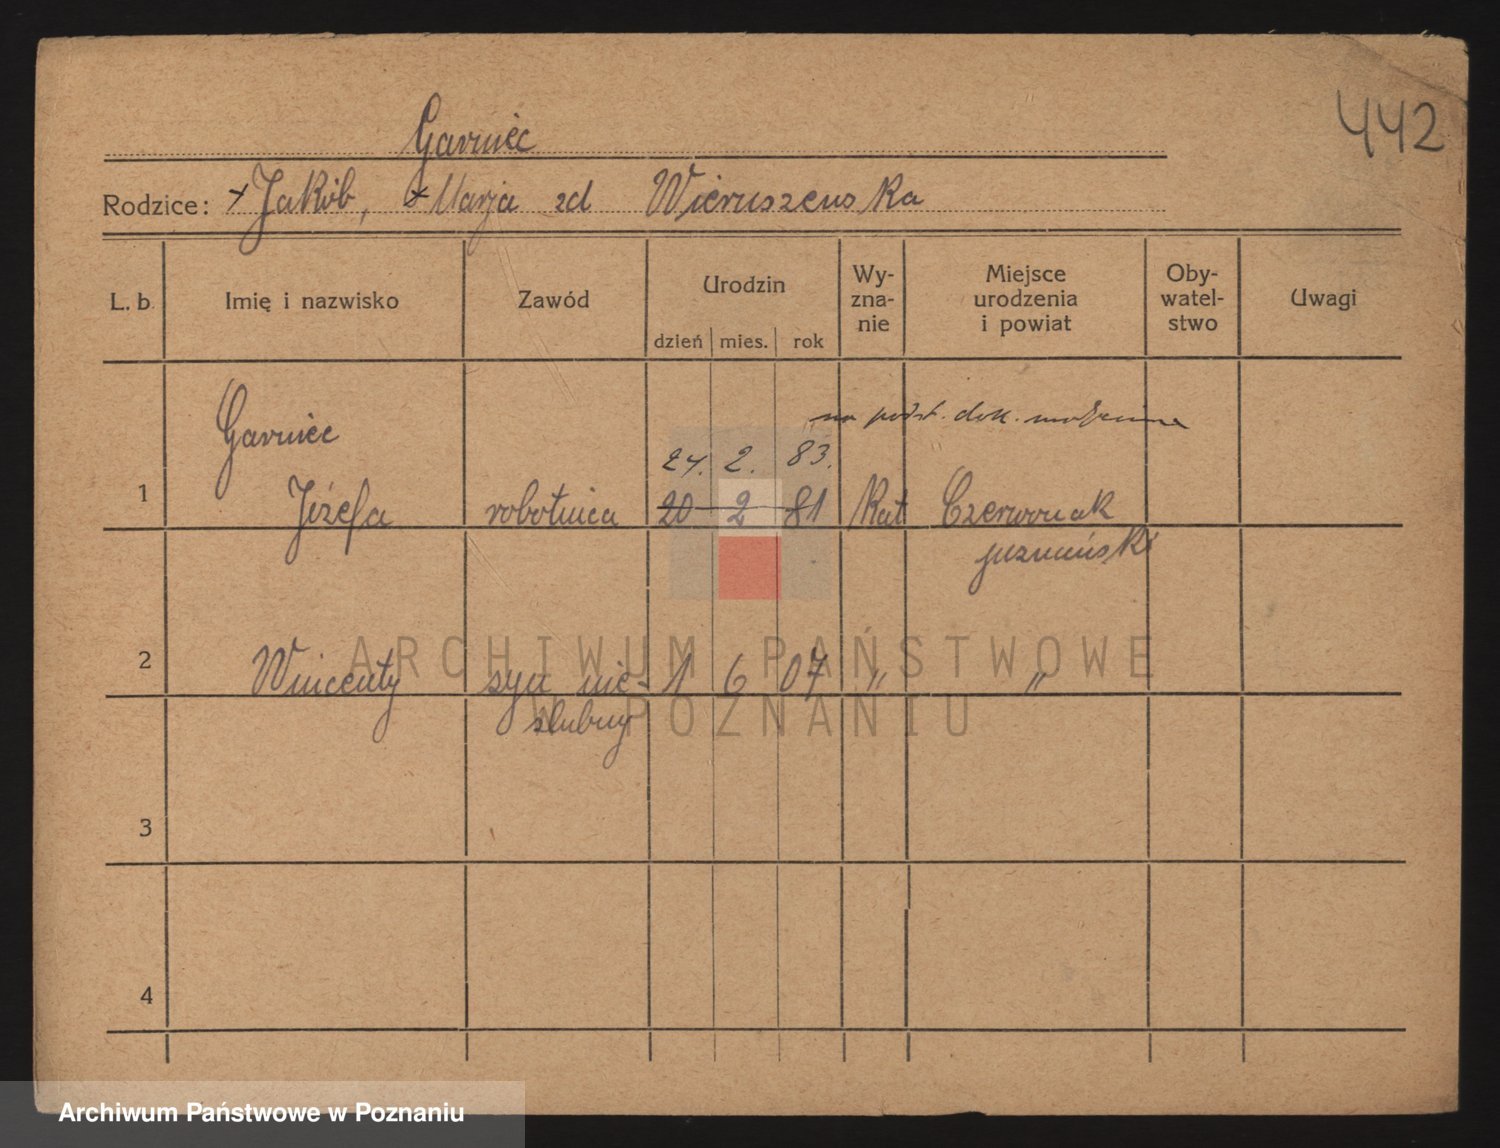 442
Garniec
Rodzice: + Jakób, + Marja zd Wieruszewska
L. b. Imię i nazwisko Zawód Urodzin Wy-zna-nie Miejsce urodzenia i powiat Oby-watel-stwo Uwagi
dzień mies. rok
na podst. dok.
Garniec
24. 2. 83.
1 Józefa robotnica 20 2 81 Kat Czerwonak
poznański
2 Wincenty syn nie- 1 6 07 " "
ślubny
3
4
ARCHIWUM PAŃSTWOWE
W POZNANIU
Archiwum Państwowe w Poznaniu